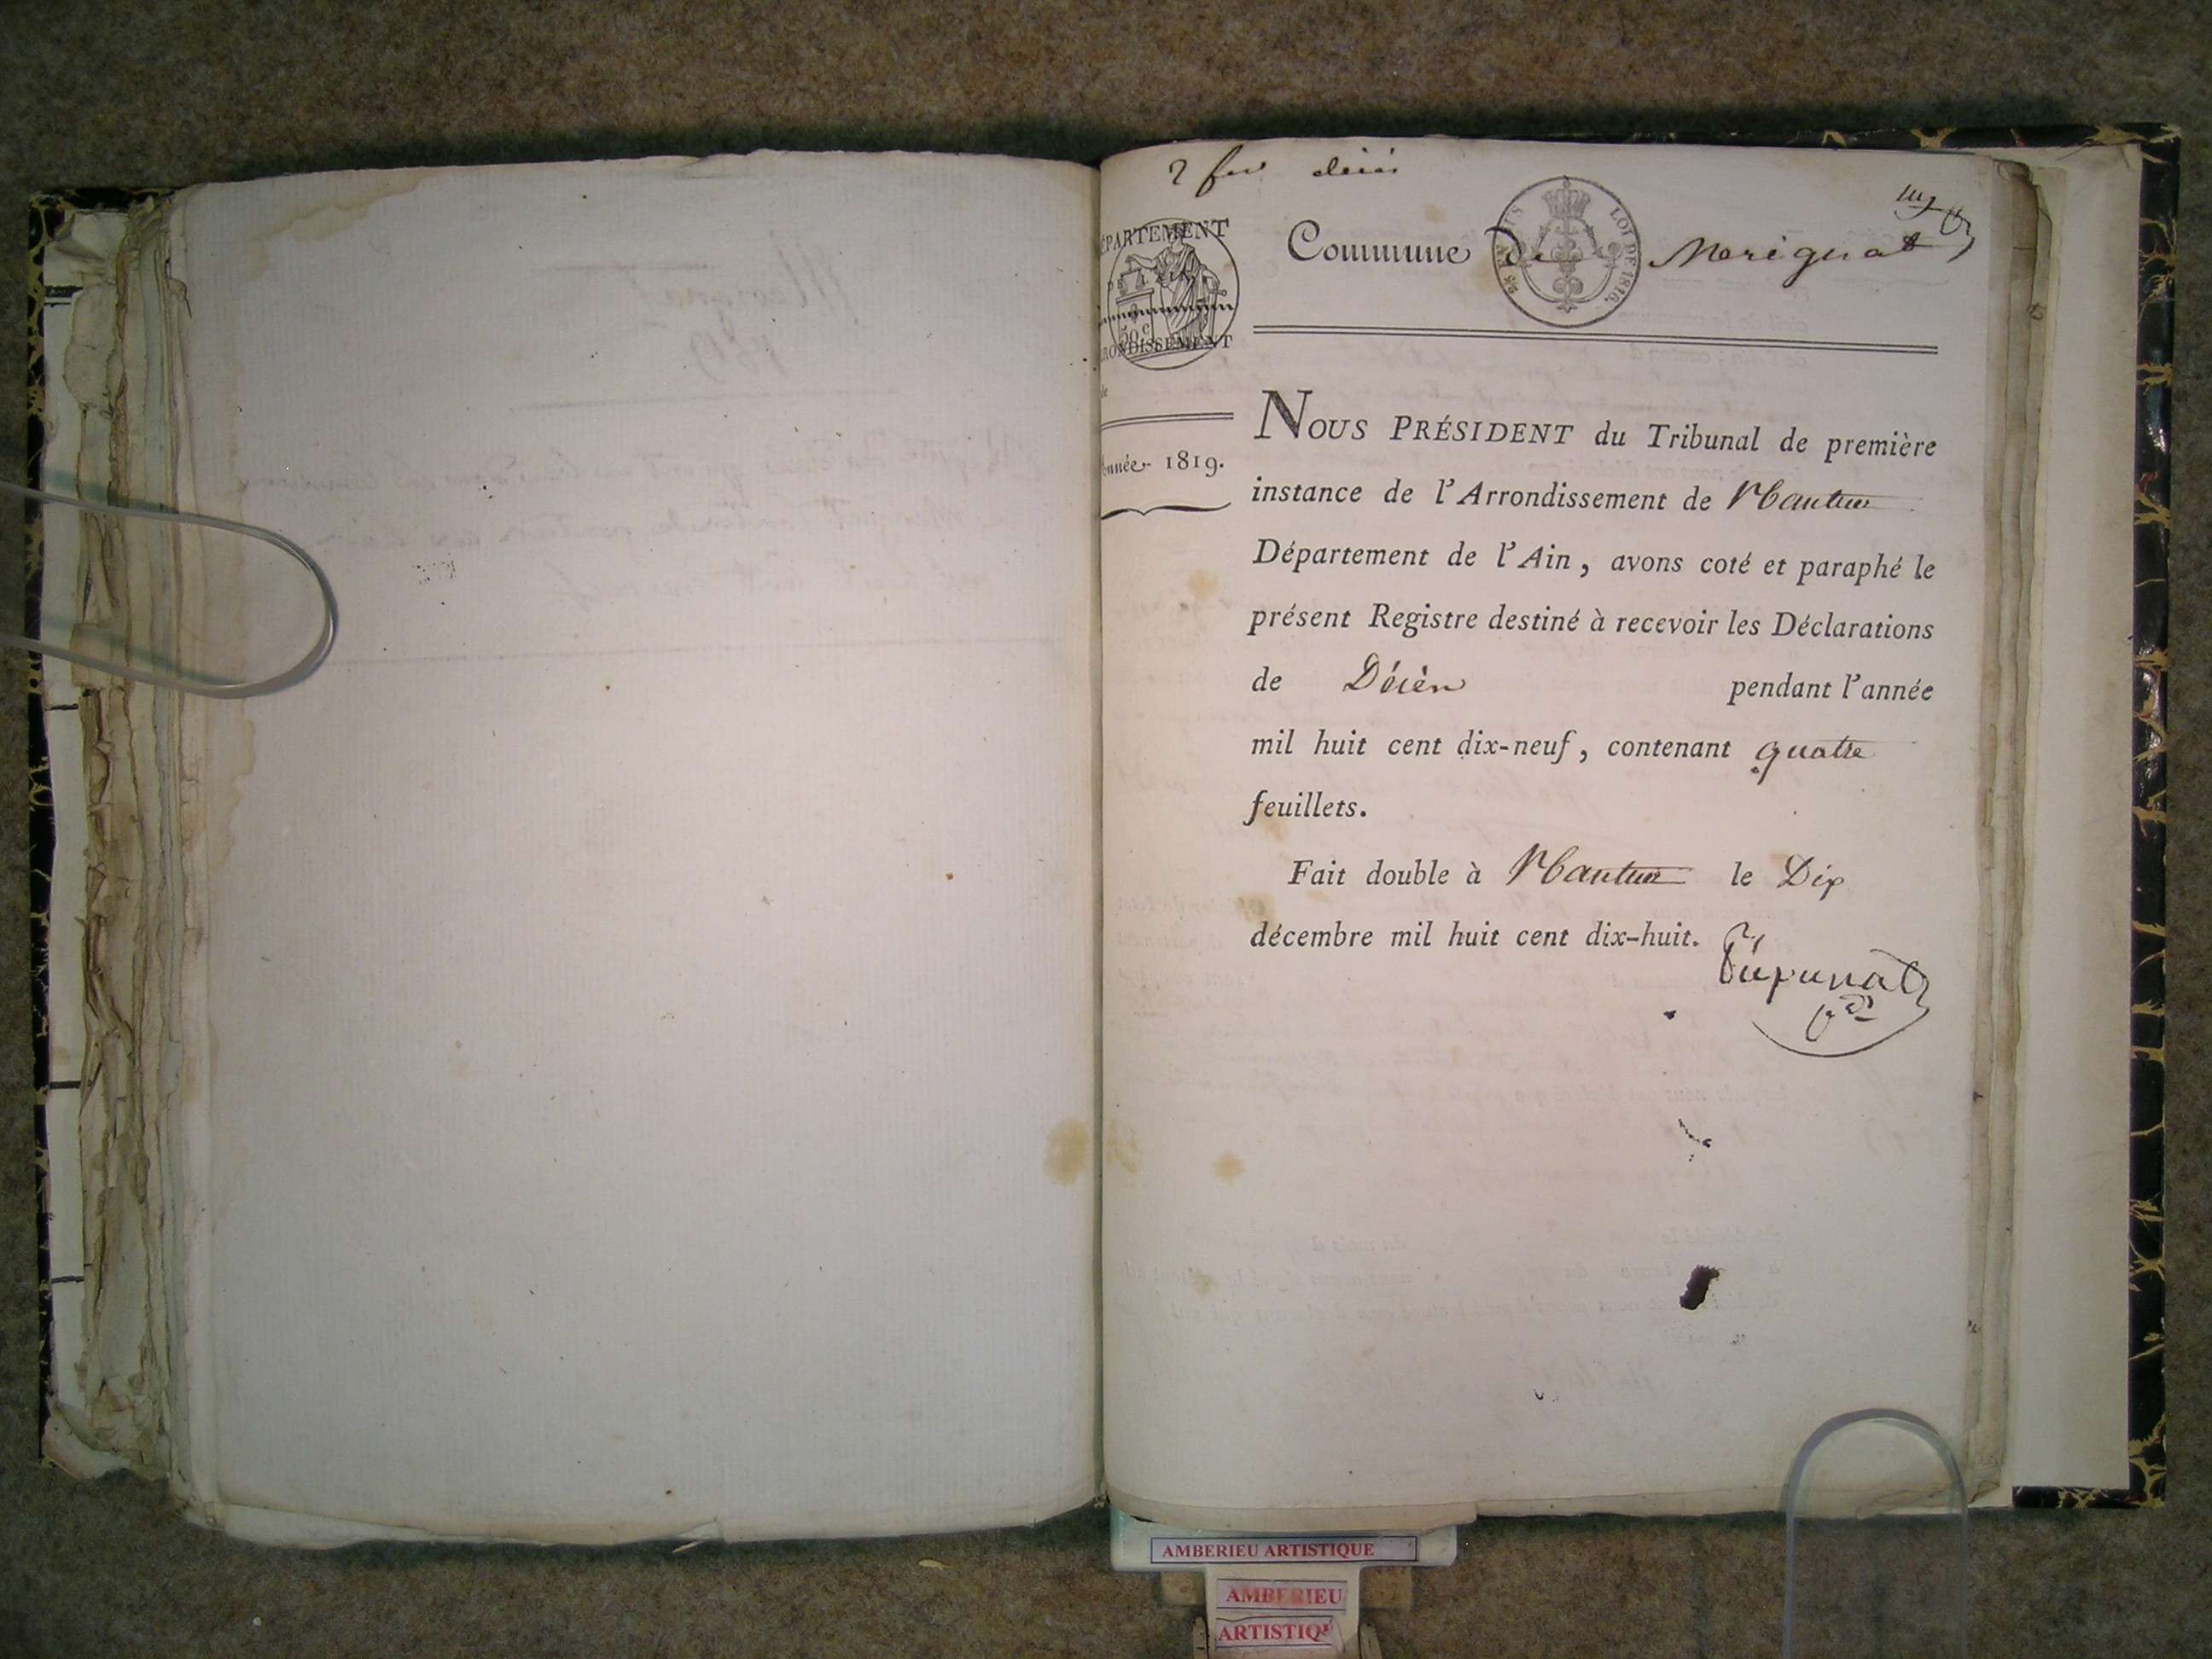 Commune de Merignat
DÉPARTEMENT
DE
50 c
ARRONDISSEMENT
de
Année 1819.
LOI DE 1816.
NOUS PRÉSIDENT du Tribunal de première
instance de l'Arrondissement de Nantua
Département de l'Ain, avons coté et paraphé le
présent Registre destiné à recevoir les Déclarations
de Décès pendant l'année
mil huit cent dix-neuf, contenant quatre
feuillets.
Fait double à Nantua le Dix
décembre mil huit cent dix-huit.
AMBERIEU ARTISTIQUE
AMBERIEU
ARTISTIQ